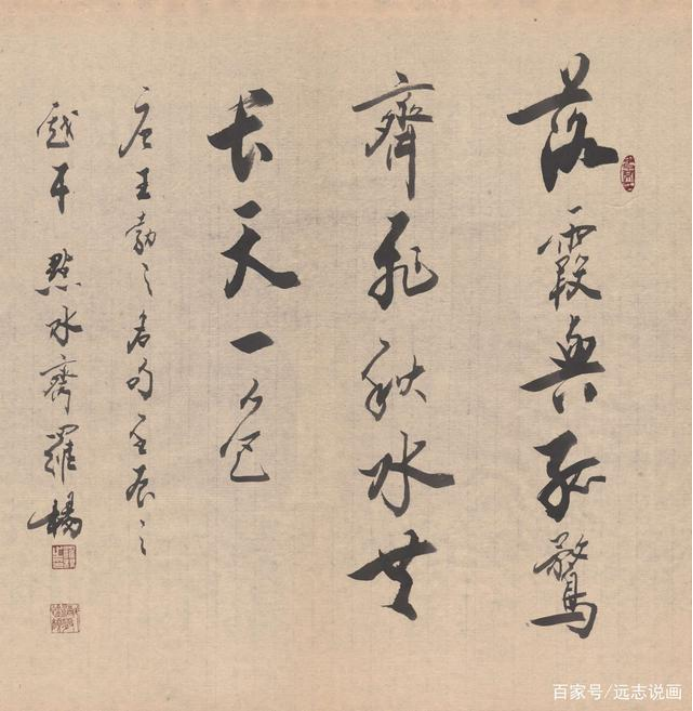 落霞與孤驚
齊飛秋水共
長天一色
唐王勃之名句壬辰之
歲于點水齋羅楊
百家号/远志说画